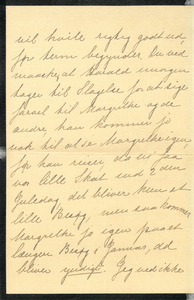 vil hvile rigtig godt ud
før herm begynder. Du ved
maaske, at Harald imorgen
tager til Slagelse for at sige
Farvel til Margrethe og de
andre, han kommer jo
nok til at se Margrethe igen,
før han rejser da en paa
vor lille Skat ud 2 den
Juledag, det bliver kun et
lille Besøg, men saa kommer
Margrethe jo igen paa et
længere Besøg i Januar, det
bliver yndigt. Jeg ved ikke